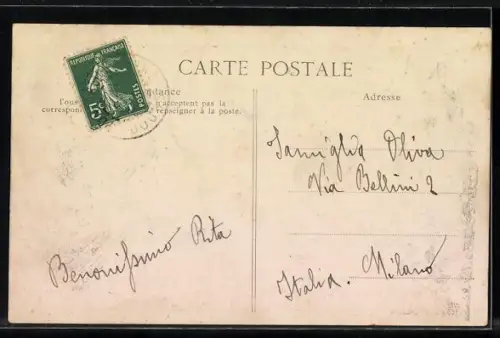 REPUBLIQUE FRANÇAISE
POSTES
5c
CARTE POSTALE
Tous
correspon
n'acceptent pas la
renseigner à la poste.
Adresse
Famiglia Oliva
Via Bellini 2
Italia. Milano
Benonissimo Rita